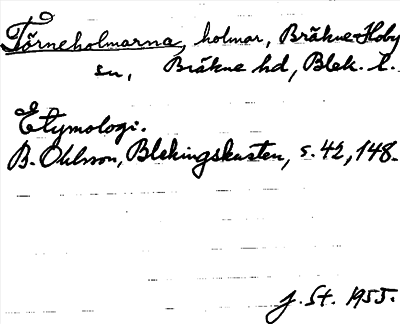 Törneholmarna, holmar, Bräkne-Hoby
sn, Bräkne hd, Blek. l.
Etymologi.
B. Ohlsson, Blekingskusten, s. 42, 148.
J. St. 1955.